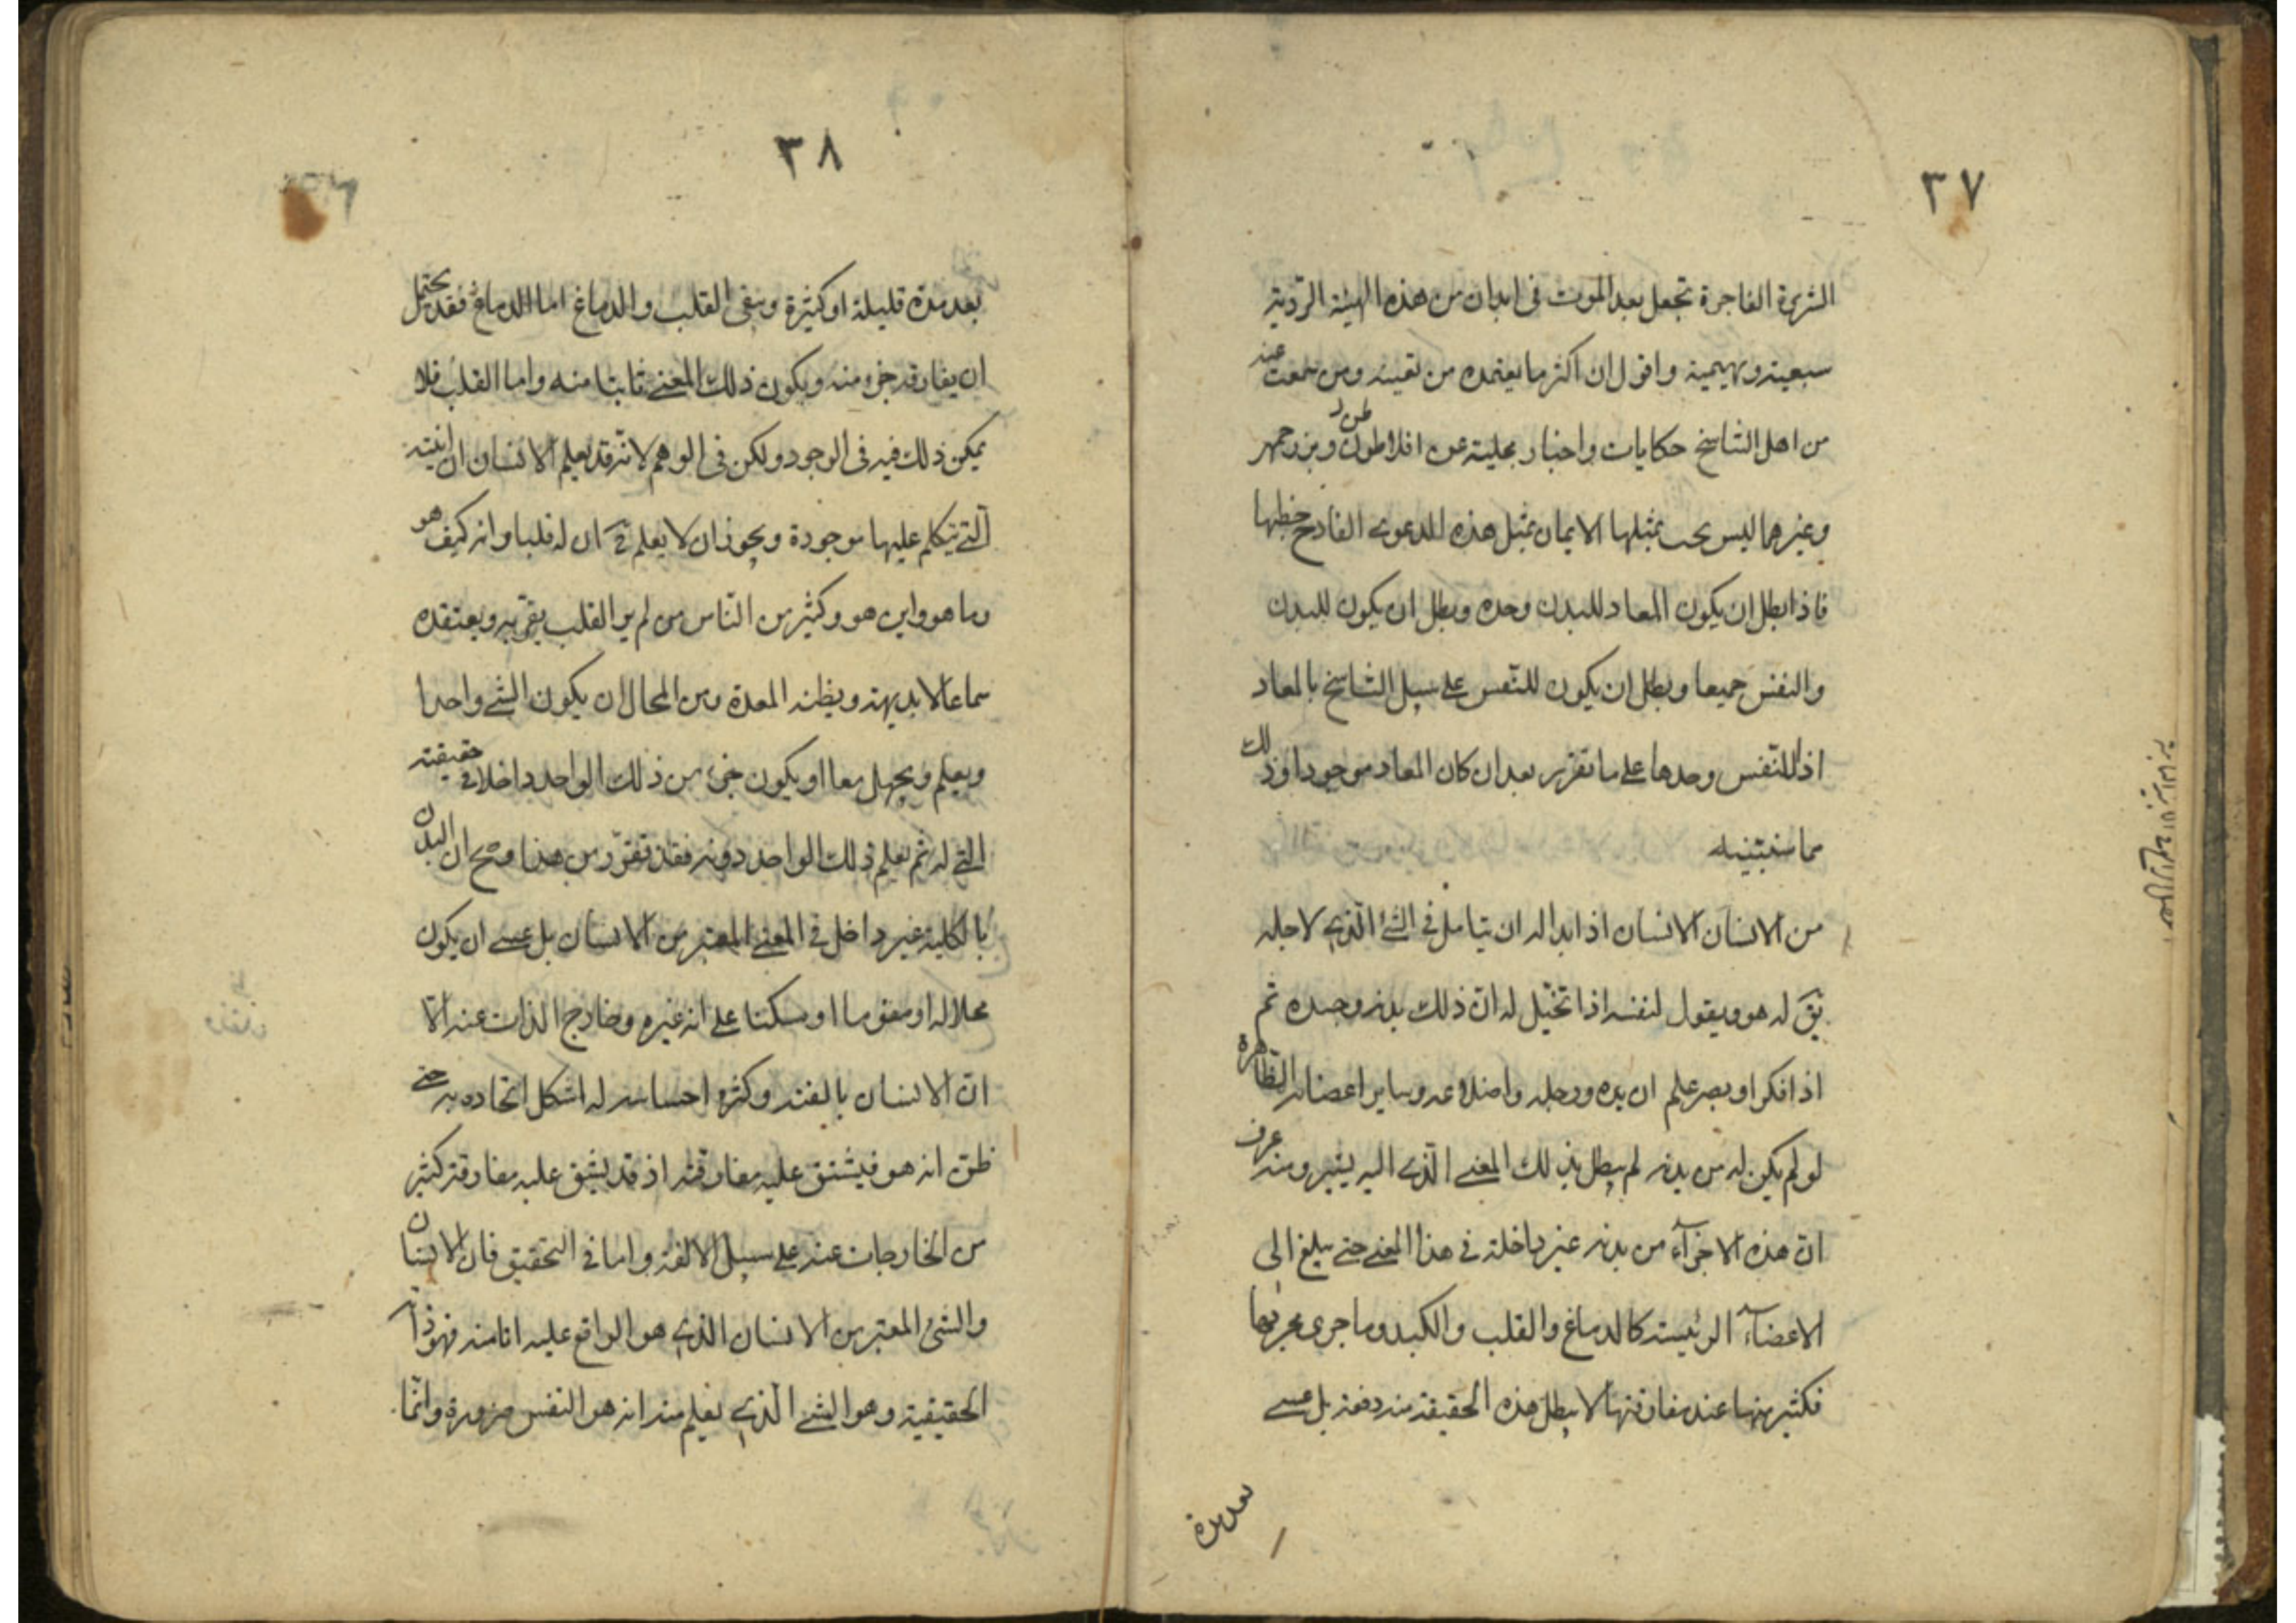 ٣٧
الشريرة الفاجرة تجعل بعد الموت فى ابدان من هذه الهيئة الردّية
سبعية وبهيمية واقول ان اكثر ما يعتمده من لقيته ومن سمعت عنه
من اهل التناسخ حكايات واخبار محلية عن افلاطون وبزرجمهر
وغيرهما ليس يجب بمثلها الايمان بمثل هذه الدعوى الفادح خطبها
فاذا بطل ان يكون المعاد للبدن وحده وبطل ان يكون للبدن
والنفس جميعا وبطل ان يكون للنّفس على سبيل التناسخ بالمعاد
اذا للنّفس وحدها على ما تقرر بعد ان كان المعاد موجودا وذلك
مما سنبتنيه
من الانسان الانسان اذا بدا له ان يتامل فى الشئ الّذى لاجله
يق له هو ويقول لنفسه اذا تخيّل له انّ ذلك بدنه وجسده ثم
اذا فكر او بصر علم ان يده ورجله واضلاعه وساير اعضائه الظّاهرة
لو لم يكن له من بدنه لم يبطل بذلك المعنى الّذى اليه يشير ومنه عرف
انّ هذه الاجزآء من بدنه غير داخلة فى هذا المعنى حتى يبلغ الى
الاعضآء الرئيسة كالدماغ والقلب والكبد وما جرى مجريها
فكثير منها عند مفارقتها لا يبطل هذه الحقيقة منه دفعة بل عسى
بعد مدة
٣٨
بعد مدة قليلة او كثيرة ويبقى القلب والدماغ اما الدماغ فقد يحتمل
ان يفارقه جزء منه ويكون ذلك المعنى ثابتا منه واما القلب فلا
يمكن ذلك فيه فى الوجود ولكن فى الوهم لانّه قد يعلم الانسان ان انيته
الّتى يتكلم عليها موجودة ويجوز ان لا يعلم ح ان له قلبا وانه كيف هو
وما هو واين هو وكثير من النّاس من لم ير القلب يقرّ به ويعتقده
سماعا لا بديهة ويظنه المعدة ومن المحال ان يكون الشئ واحدا
ويعلم ويجهل معا او يكون جزء من ذلك الواحد داخلا فى حقيقته
الّتى له ثم يعلم ذلك الواحد دونه فقد تقرّر من هذا وصح ان البدن
بالكلية غير داخل فى المعنى المعتبر من الانسان بل عسى ان يكون
محلا له او مقوما او مسكنا على انه غيره وخارج الذات عنه الا
انّ الانسان بالفته وكثرة احساسه له اشكل اتحاده به حتى
ظنّ انه هو فيشتق عليه مفارقته اذ قد يشق عليه مفارقة كثير
من الخارجات عنه على سبيل الالفة واما فى التحقيق فان الانسان
والشئ المعتبر من الانسان الذى هو الواقع عليه انا منه فهو ذاته
الحقيقية وهو الشئ الّذى يعلم منه انه هو النفس ضرورة وانّما